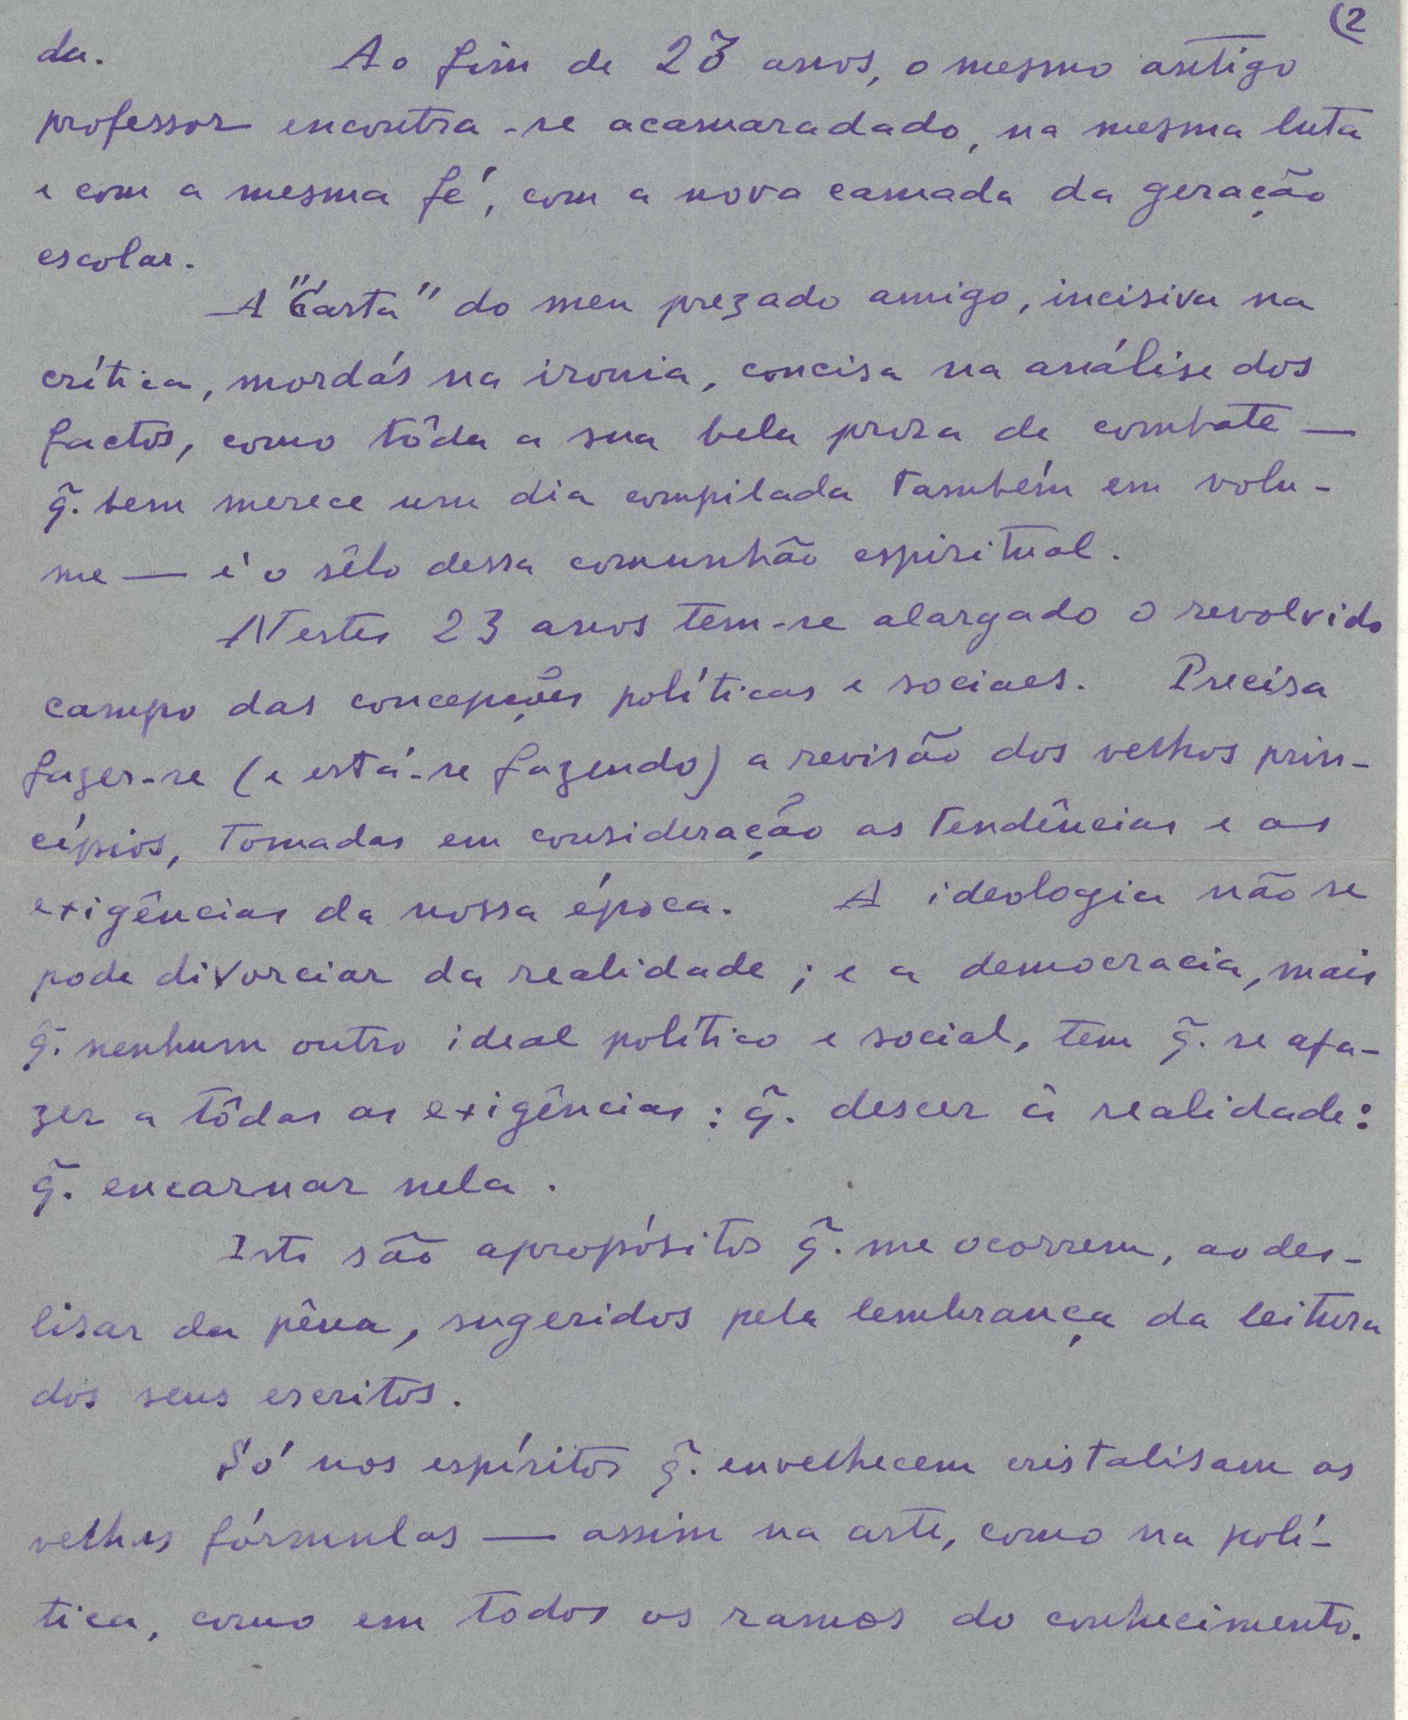 (2
da. Ao fim de 23 anos, o mesmo antigo
professor encontra-se acamaradado, na mesma luta
e com a mesma fé, com a nova camada da geração
escolar.
A "Carta" do meu prezado amigo, incisiva na
crítica, mordás na ironia, concisa na análise dos
factos, como tôda a sua bela prosa de combate —
q̃. bem merece um dia compilada também em volu-
me — é o sêlo dessa comunhão espiritual.
Nestes 23 anos tem-se alargado o revolvido
campo das concepções políticas e sociaes. Precisa
fazer-se (e está-se fazendo) a revisão dos velhos prin-
cípios, tomadas em consideração as tendências e as
exigências da nossa época. A ideologia não se
pode divorciar da realidade; e a democracia, mais
q̃. nenhum outro ideal político e social, tem q̃. se afa-
zer a tôdas as exigências: q̃. descer à realidade:
q̃. encarnar nela.
Isto são apropósitos q̃. me ocorrem, ao des-
lisar da pêna, sugeridos pela lembrança da leitura
dos seus escritos.
Só nos espíritos q̃. envelhecem cristalisam as
velhas fórmulas — assim na arte, como na polí-
tica, como em todos os ramos do conhecimento.